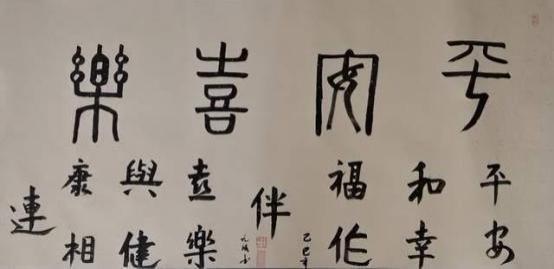 平安喜樂
平安
和幸
福作
伴
乙巳年
喜樂
與健
康相
連